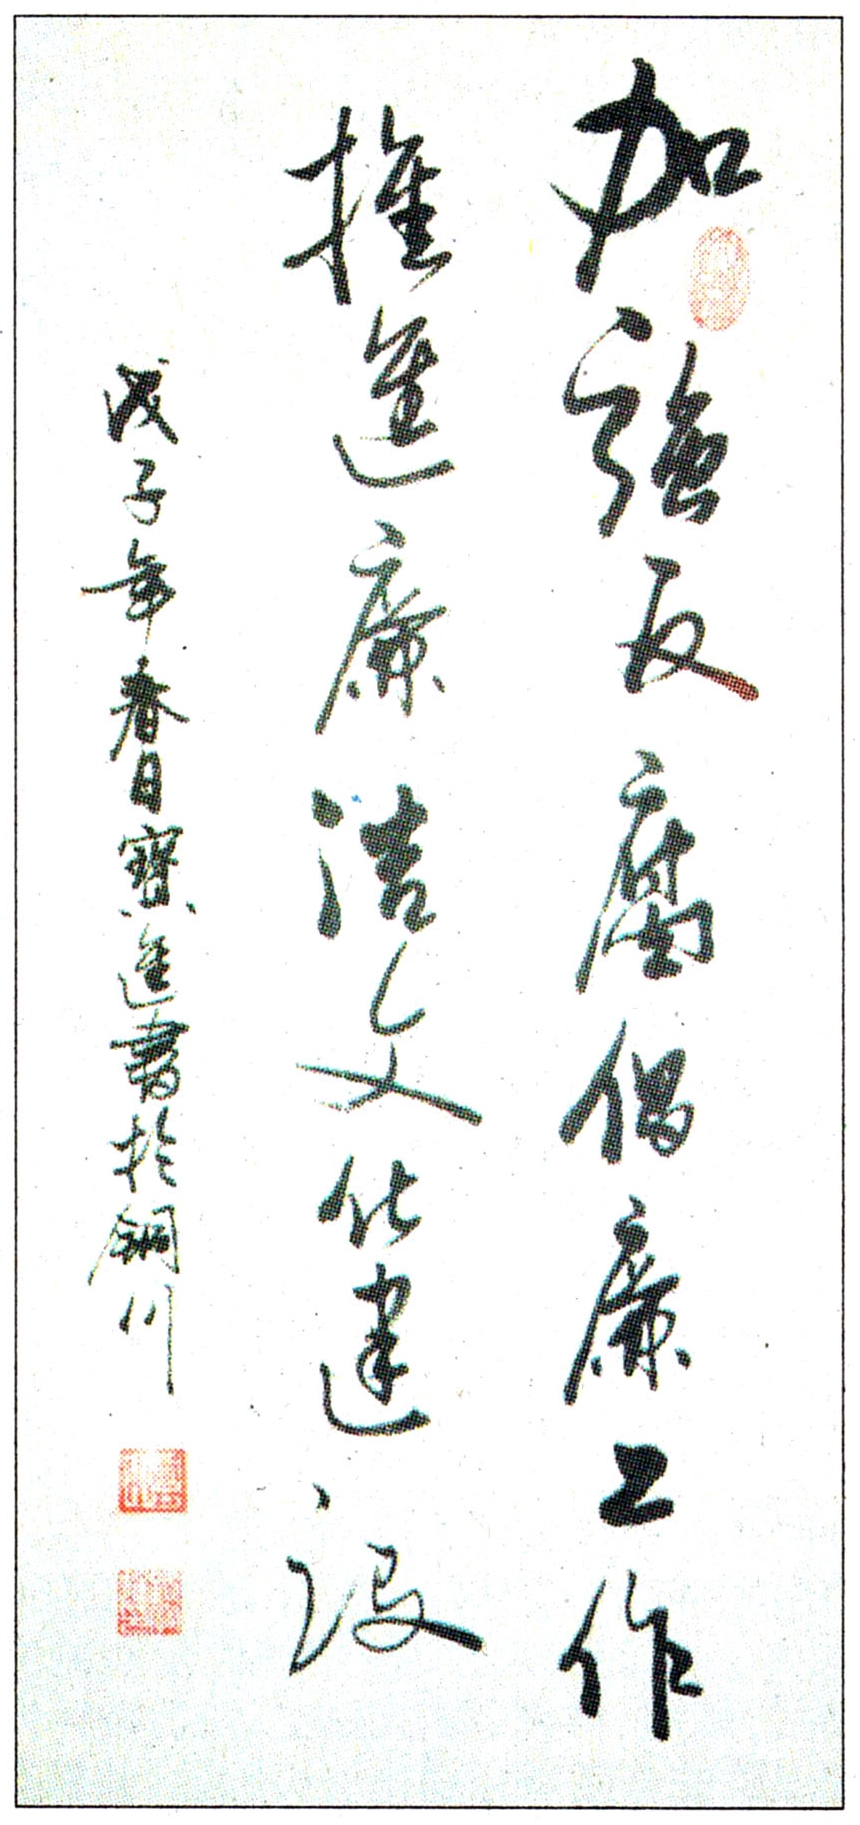 加強反腐倡廉工作
推進廉洁文化建设
戊子年春日寶進書於銅川